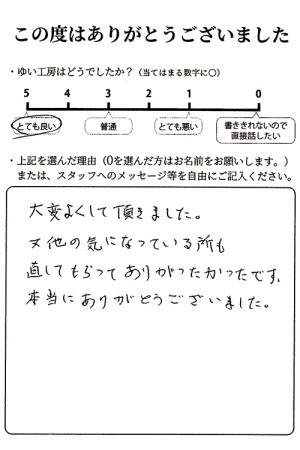 この度はありがとうございました
・ゆい工房はどうでしたか？（当てはまる数字に○）
5 4 3 2 1 0
とても良い 普通 とても悪い 書ききれないので直接話したい
・上記を選んだ理由（0を選んだ方はお名前をお願いします。）
または、スタッフへのメッセージ等を自由にご記入ください。
大変よくして頂きました。
又他の気になっている所も
直してもらってありがたかったです。
本当にありがとうございました。